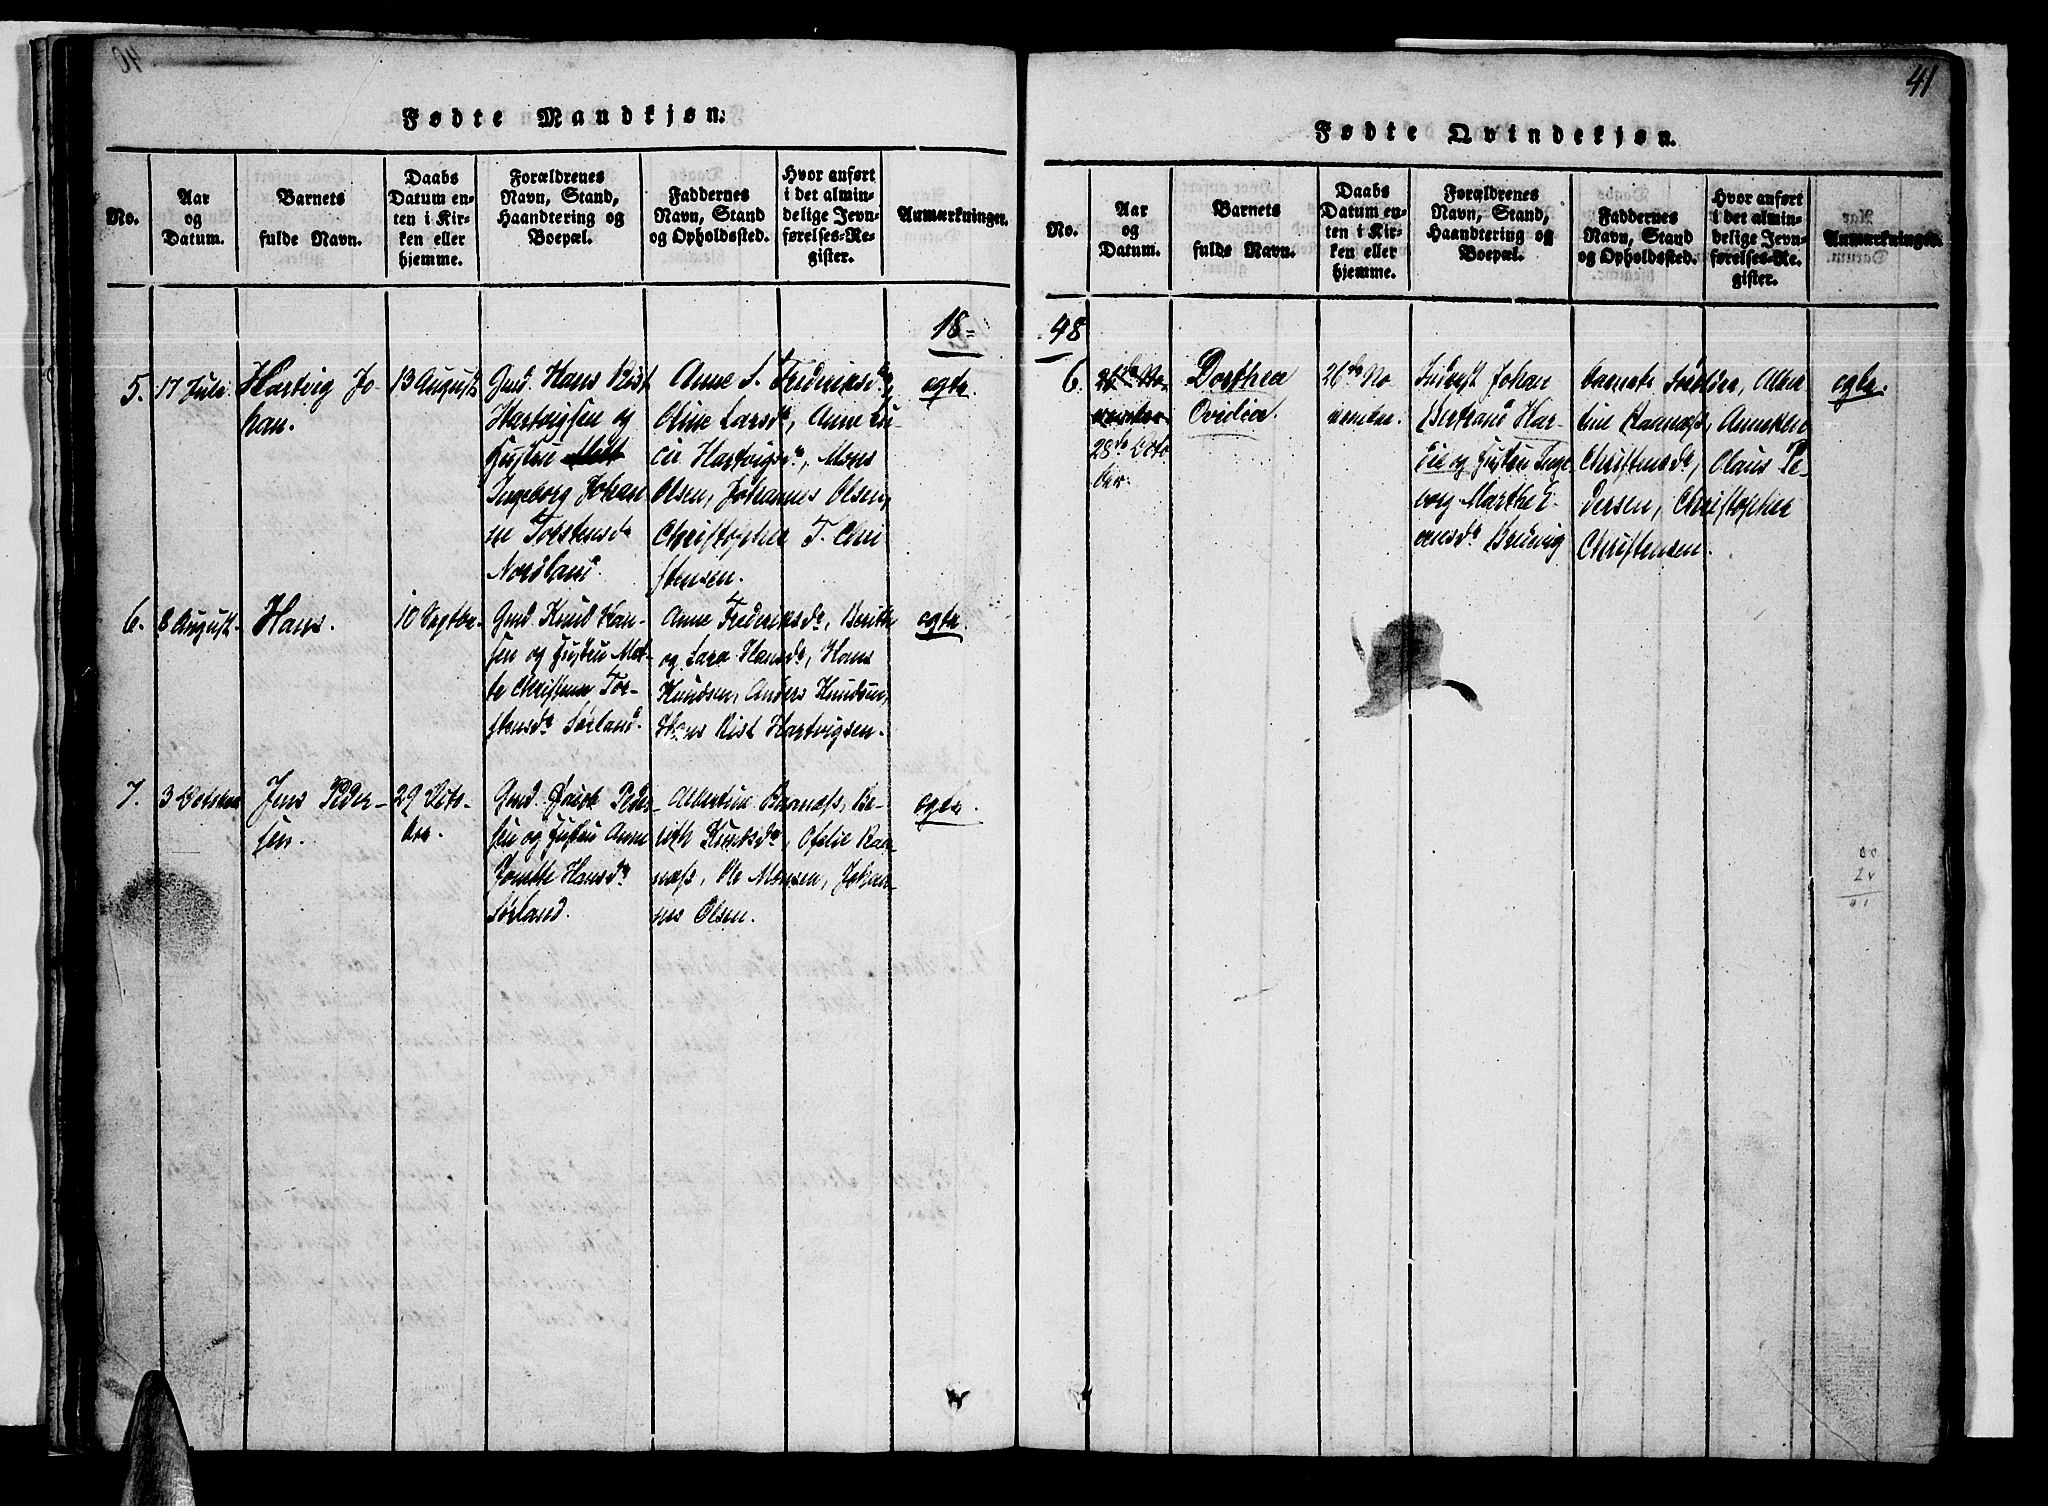 41
Fødte Mandkjøn:
No.
Aar
og
Datum.
Barnets
fulde Navn.
Daabs
Datum en-
ten i Kir-
ken eller
hjemme.
Forældrenes
Navn, Stand,
Haandtering og
Boepæl.
Faddernes
Navn, Stand
og Opholdssted.
Hvor anført
i det almin-
delige Jevn-
førelses-Re-
gister.
Anmærkninger.
18-
5.
17 Juli
Hartvig Jo-
han.
13 August
Gmd. Hans Rist
Hartvigsen og
Hustru
Ingeborg Johan
ne Torstensdr
Nordland.
Anne S. Fredriksdr,
Oline Larsdr, Anne Lu-
cie Hartvigsdr, Mons
Olsen, Johannes Olsen,
Christopher T. Chri
stensen.
ægte.
6.
8 August.
Hans.
10 Septbr.
Gmd. Knud Han-
sen og Hustru Met-
te Christense Tor-
stensdr Sørland.
Anne Fredriksdr, Berith
og Lara Hansdr, Hans
Knudsen, Anders Knudsen,
Hans Rist Hartvigsen.
ægte.
7.
3 October
Jens Peder-
sen.
29 Octo-
ber.
Gmd. Jacob Peder-
sen og Hustru Anne
Jonette Hansdr
Sørland.
Albertine Baanæss, Be-
rith Knudsdr, Ofelie Raa-
næss, Ole Monsen, Johan-
nes Olsen.
ægte.
Fødte Qvindekjøn.
No.
Aar
og
Datum.
Barnets
fulde Navn.
Daabs
Datum en-
ten i Kir-
ken eller
hjemme.
Forældrenes
Navn, Stand,
Haandtering og
Boepæl.
Faddernes
Navn, Stand
og Opholdssted.
Hvor anført
i det almin-
delige Jevn-
førelses-Re-
gister.
Anmærkninger.
48
6.
26de No-
vember
28de Octo
ber.
Dorthea
Ovidia.
26de No
vember.
Inderst Johan
Bertrand Har-
og Hustru Inge-
borg Marthe E-
vensdr Bruvig
Barnets Forældre, Alber
tine Raanæss,
Christensdr, Claus Pe-
dersen, Christopher
Christensen.
ægte.